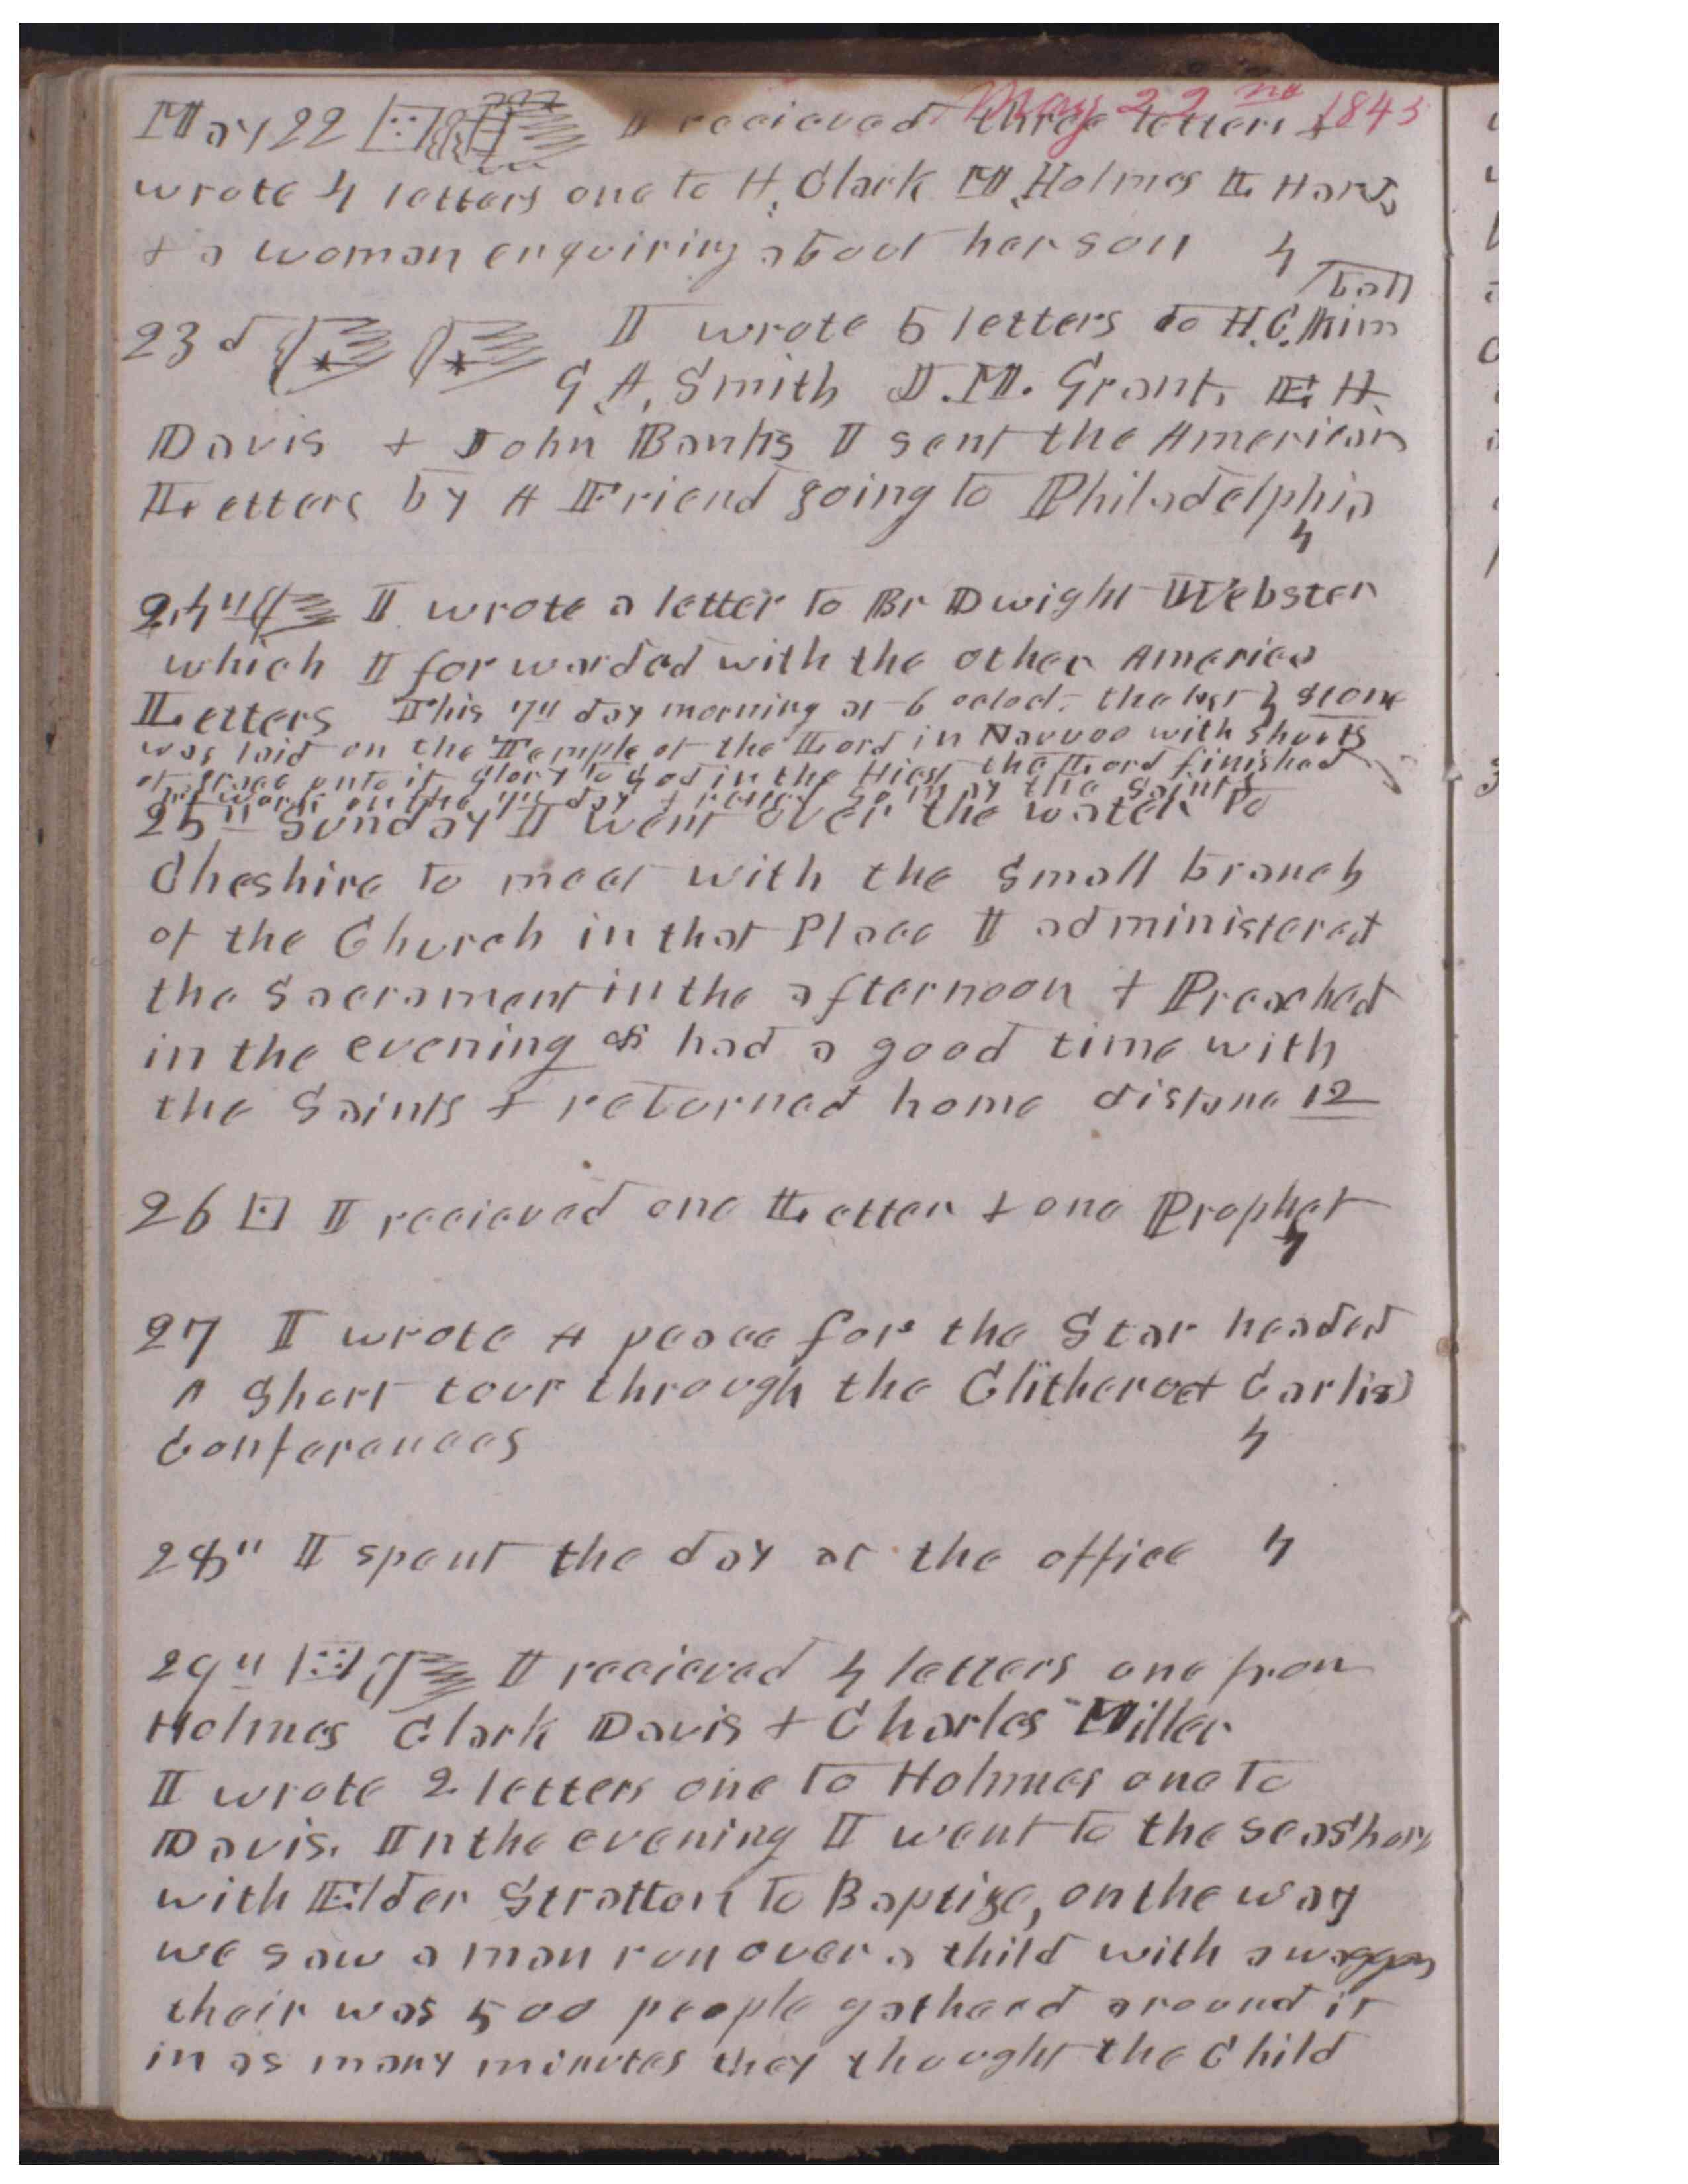 May 22nd 1845
May 22 I recieved three letters +
wrote 4 letters one to H. Clark M Holmes L Hardy
+ a woman enquiring about her son 4
23d I wrote 5 letters to H.C. Kim
ball
G A. Smith J. M. Grant, E H.
Davis + John Banks I sent the American
Letters by A Friend going to Philadelphia
4
24th I wrote a letter to Br Dwight Webster
which I forwarded with the other America
Letters This 7th day morning at 6 oclock the last stone
was laid on the Temple of the Lord in Nauvoo with shouts
of grace unto it glory to God in the Hiest the Lord finished
his work on the 7th day + rested so may the Saints
25th Sunday I went over the water to
Cheshire to meet with the Small branch
of the Church in that Place I administered
the Sacrament in the afternoon + Preached
in the evening & had a good time with
the Saints + returned home distane 12
26 I recieved one Letter + one Prophet
4
27 I wrote A peace for the Star headed
A Short tour through the Clitheroe + Carlis
Conferences 4
28" I spent the day at the office 4
29th I recieved 4 letters one from
Holmes Clark Davis + Charles Miller
I wrote 2 letters one to Holmes one to
Davis. In the evening I went to the seashore
with Elder Stratton to Baptize, on the way
we saw a man run over a child with a waggon
their was 500 people gatherd around it
in as many minutes they thought the Child